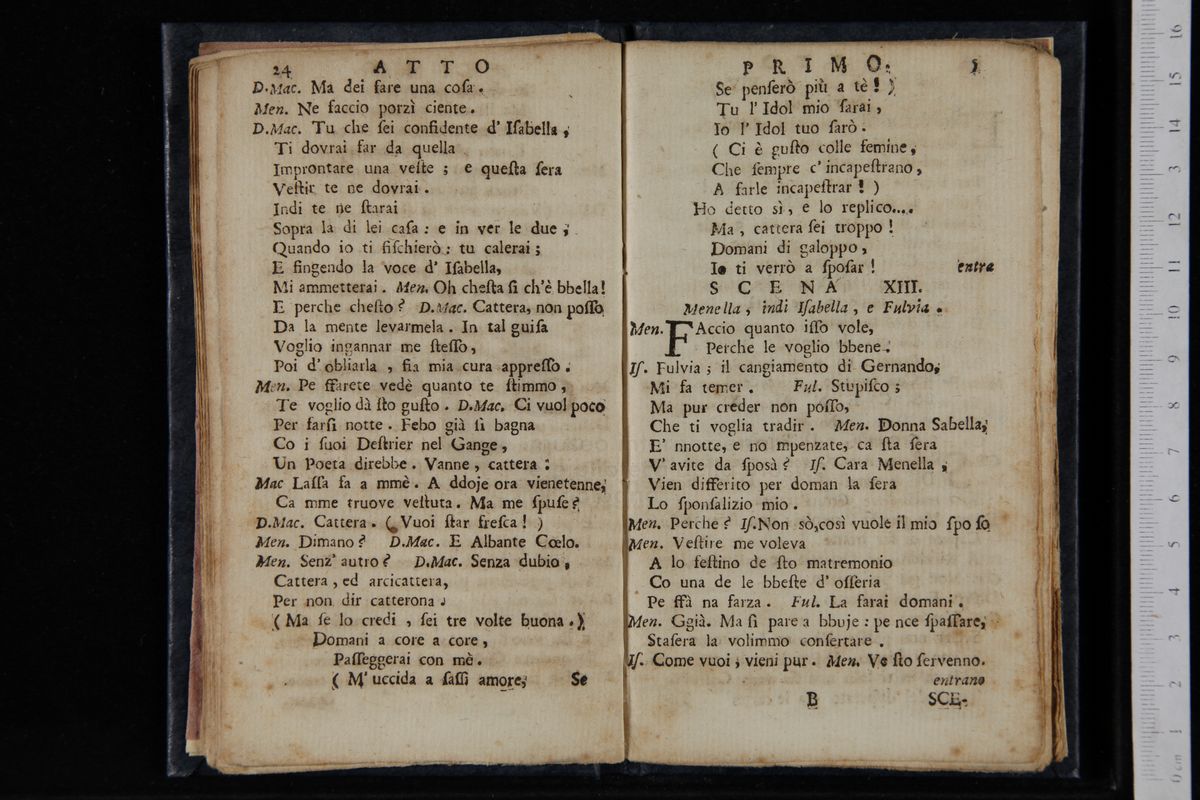 24 ATTO
D.Mac. Ma dei fare una coſa.
Men. Ne faccio porzì ciente.
D.Mac. Tu che ſei confidente d' Iſabella,
Ti dovrai far da quella
Improntare una veſte; e queſta ſera
Veſtir te ne dovrai.
Indi te ne ſtarai
Sopra là di lei caſa: e in ver le due,
Quando io ti fiſchierò: tu calerai;
E fingendo la voce d' Iſabella,
Mi ammetterai. Men. Oh cheſta ſi ch'è bbella!
E perche cheſto? D.Mac. Cattera, non poſſo
Da la mente levarmela. In tal guiſa
Voglio ingannar me ſteſſo,
Poi d' obliarla, fia mia cura appreſſo.
Men. Pe ffarete vedè quanto te ſtimmo,
Te voglio dà ſto guſto. D.Mac. Ci vuol poco
Per farſi notte. Febo già ſi bagna
Co i ſuoi Deſtrier nel Gange,
Un Poeta direbbe. Vanne, cattera:
Mac Laſſa fa a mmè. A ddoje ora vienetenne,
Ca mme truove veſtuta. Ma me ſpuſe?
D.Mac. Cattera. (Vuoi ſtar freſca!)
Men. Dimano? D.Mac. E Albante Cœlo.
Men. Senz' autro? D.Mac. Senza dubio,
Cattera, ed arcicattera,
Per non dir catterona.
(Ma ſe lo credi, ſei tre volte buona.)
Domani a core a core,
Paſſeggerai con mè.
(M' uccida a ſaſſi amore, Se
PRIMO.
Se penſerò più a tè!)
Tu l' Idol mio ſarai,
Io l' Idol tuo ſarò.
(Ci è guſto colle femine,
Che ſempre c' incapeſtrano,
A farle incapeſtrar!)
Ho detto sì, e lo replico....
Ma, cattera ſei troppo!
Domani di galoppo,
Io ti verrò a ſpoſar! entra
SCENA XIII.
Menella, indi Iſabella, e Fulvia.
Men. FAccio quanto iſſo vole,
Perche le voglio bbene.
Iſ. Fulvia; il cangiamento di Gernando,
Mi fa temer. Ful. Stupiſco;
Ma pur creder non poſſo,
Che ti voglia tradir. Men. Donna Sabella,
E' nnotte, e no mpenzate, ca ſta ſera
V' avite da ſposà? Iſ. Cara Menella,
Vien differito per doman la ſera
Lo ſponſalizio mio.
Men. Perche? Iſ. Non sò, così vuole il mio ſpo ſo
Men. Veſtire me voleva
A lo feſtino de ſto matremonio
Co una de le bbeſte d' oſſeria
Pe ffà na farza. Ful. La farai domani.
Men. Ggià. Ma ſi pare a bbuje: pe nce ſpaſſare,
Staſera la volimmo conſertare.
Iſ. Come vuoi, vieni pur. Men. Ve ſto ſervenno.
entrano
B SCE-
16
15
14
13
12
11
10
9
8
7
6
5
4
3
2
1
0 cm